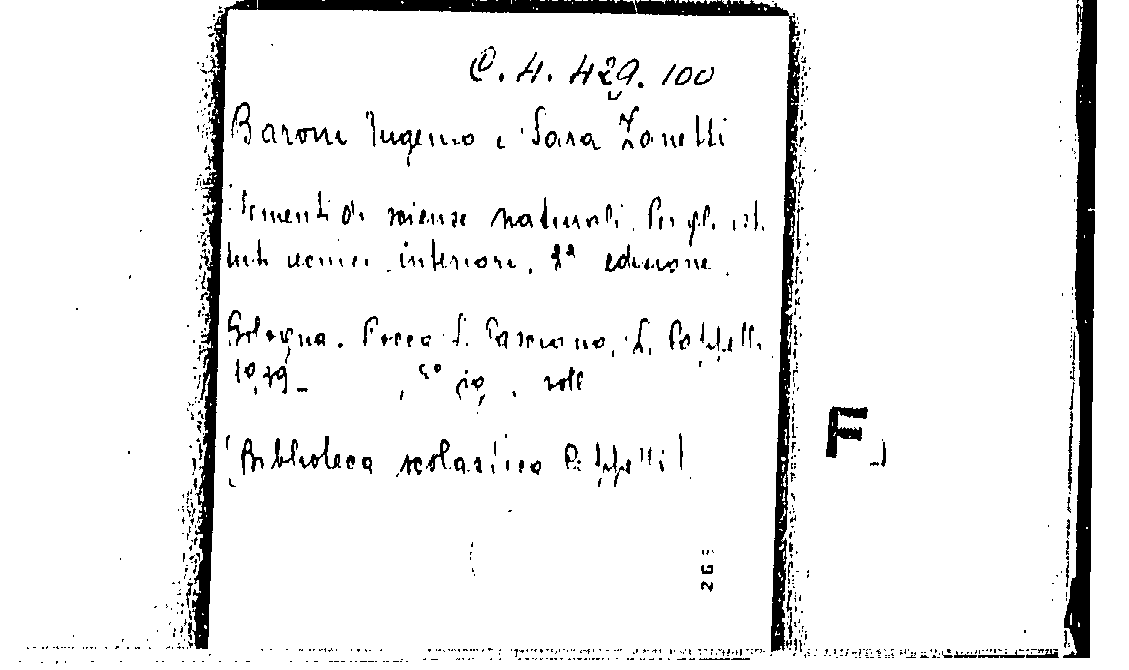 C. 4. 429. 100
Barone Eugenio e Sara Zanelli
Elementi di scienze naturali. Per gli isti
tuti tecnici inferiori. 2ª edizione.
Bologna. Rocca S. Casciano, L. Cappelli
1939 - , 8°
(Biblioteca scolastica Cappelli)
F